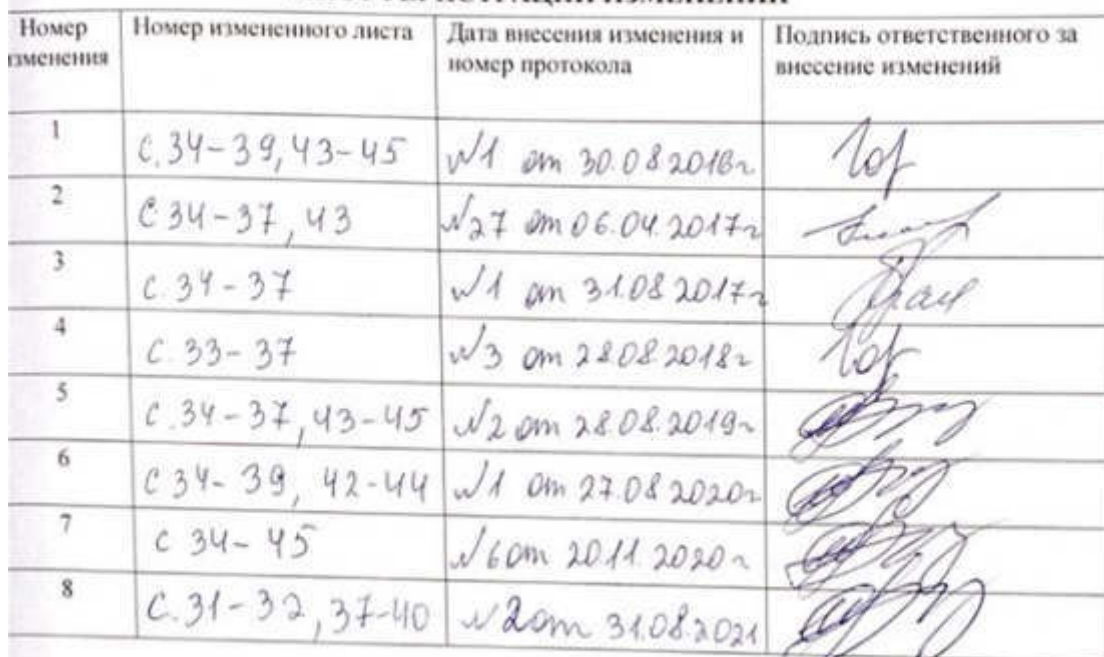 Номер изменения | Номер измененного листа | Дата внесения изменения и номер протокола | Подпись ответственного за внесение изменений
1 | с. 34-39, 43-45 | №1 от 30.08 2016г
2 | с 34-37, 43 | №27 от 06.04.2017г
3 | с. 34-37 | №1 от 31.08 2017г
4 | с. 33-37 | №3 от 28.08 2018г
5 | с. 34-37, 43-45 | №2 от 28.08.2019г
6 | с 34-39, 42-44 | №1 от 27.08 2020г
7 | с 34-45 | №6 от 20.11.2020г
8 | с. 31-32, 37-40 | №2 от 31.08.2021